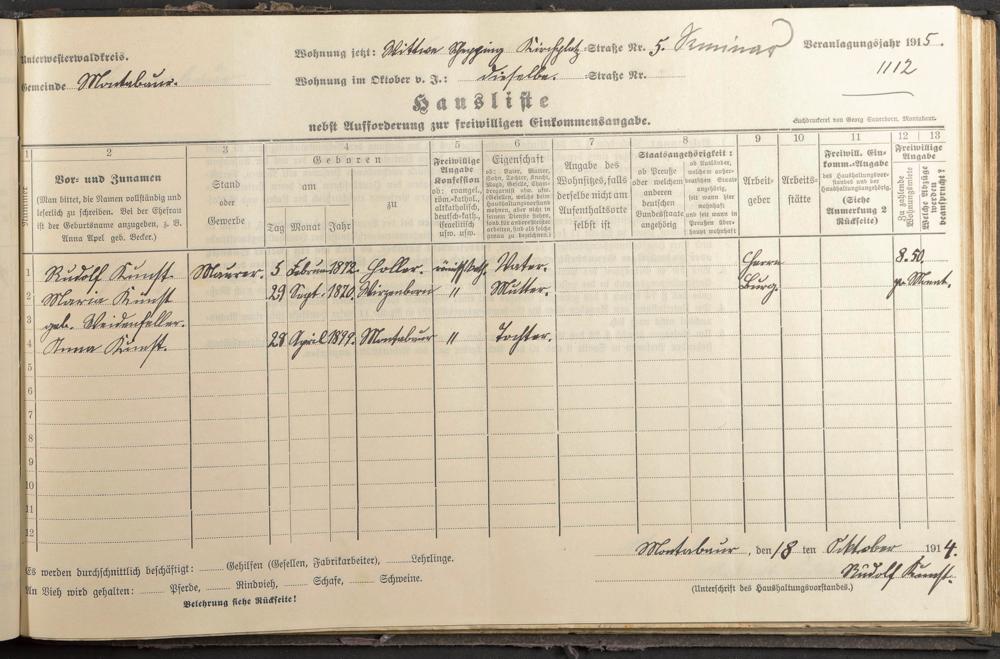 Unterwesterwaldkreis.
Gemeinde Montabaur.
Wohnung jetzt: Wittwe Kirchplatz-Straße Nr. 5. Seminar
Wohnung im Oktober v. J.: dieselbe. -Straße Nr.
Veranlagungsjahr 1915.
1112
Hausliste
nebst Aufforderung zur freiwilligen Einkommensangabe.
Buchdruckerei von Georg Sauerborn, Montabaur.
1 2 3 4 5 6 7 8 9 10 11 12 13
Vor- und Zunamen
(Man bittet, die Namen vollständig und
leserlich zu schreiben. Bei der Ehefrau
ist der Geburtsname anzugeben, z. B.
Anna Apel geb. Becker.)
Stand
oder
Gewerbe
Geboren
am
zu
Tag Monat Jahr
Freiwillige
Angabe
Konfession
ob: evangel.,
röm.-kathol.,
altkatholisch,
deutsch-kath.,
israelitisch
usw. usw.
Eigenschaft
ob: Vater, Mutter,
Sohn, Tochter, Knecht,
Magd, Geselle,
Angabe des
Wohnsitzes, falls
derselbe nicht am
Aufenthaltsorte
selbst ist
Staatsangehörigkeit:
ob Preuße
oder welchem
anderen
deutschen
Bundesstaate
angehörig
ob Ausländer,
seit wann hier
wohnhaft
und seit wann in
Preußen
überhaupt wohnhaft
Arbeit-
geber
Arbeits-
stätte
Freiwill. Ein-
komm.-Angabe
des Haushaltungsvor-
standes und der
Haushaltungsangehörig.
(Siehe
Anmerkung 2
Rückseite)
Freiwillige
Angabe
Zu zahlende
Wohnungsmiete
Welche Abzüge
werden
beansprucht?
1 Rudolf Kunst Maurer. 5 Februar 1872. Holler. römisch kath. Vater. Herrn 8.50.
2 Maria Kunst 29 Sept. 1870. Wirzenborn " Mutter. Burg. pr Monat.
3 geb. Weidenfeller.
4 Anna Kunst. 28 April 1899. Montabaur " Tochter.
5
6
7
8
9
10
11
12
Montabaur, den 18 ten Oktober 1914.
Rudolf Kunst.
(Unterschrift des Haushaltungsvorstandes.)
Es werden durchschnittlich beschäftigt: Gehilfen (Gesellen, Fabrikarbeiter), Lehrlinge.
An Vieh wird gehalten: Pferde, Rindvieh, Schafe, Schweine.
Belehrung siehe Rückseite!